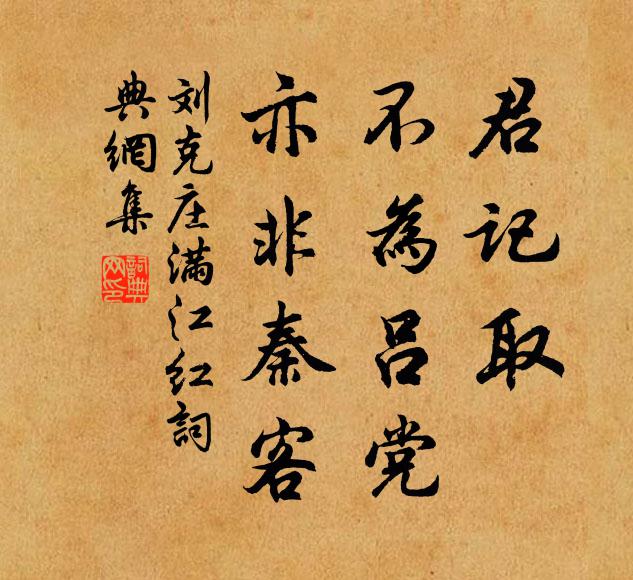 君记取
不為吕党
亦非秦客
刘克庄满江红詞
典網集
詞典網印